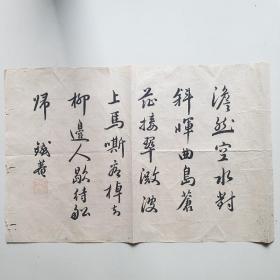 澹然空水對
斜暉曲島蒼
茫接翠微波
上馬嘶看棹去
柳邊人歇待船
歸